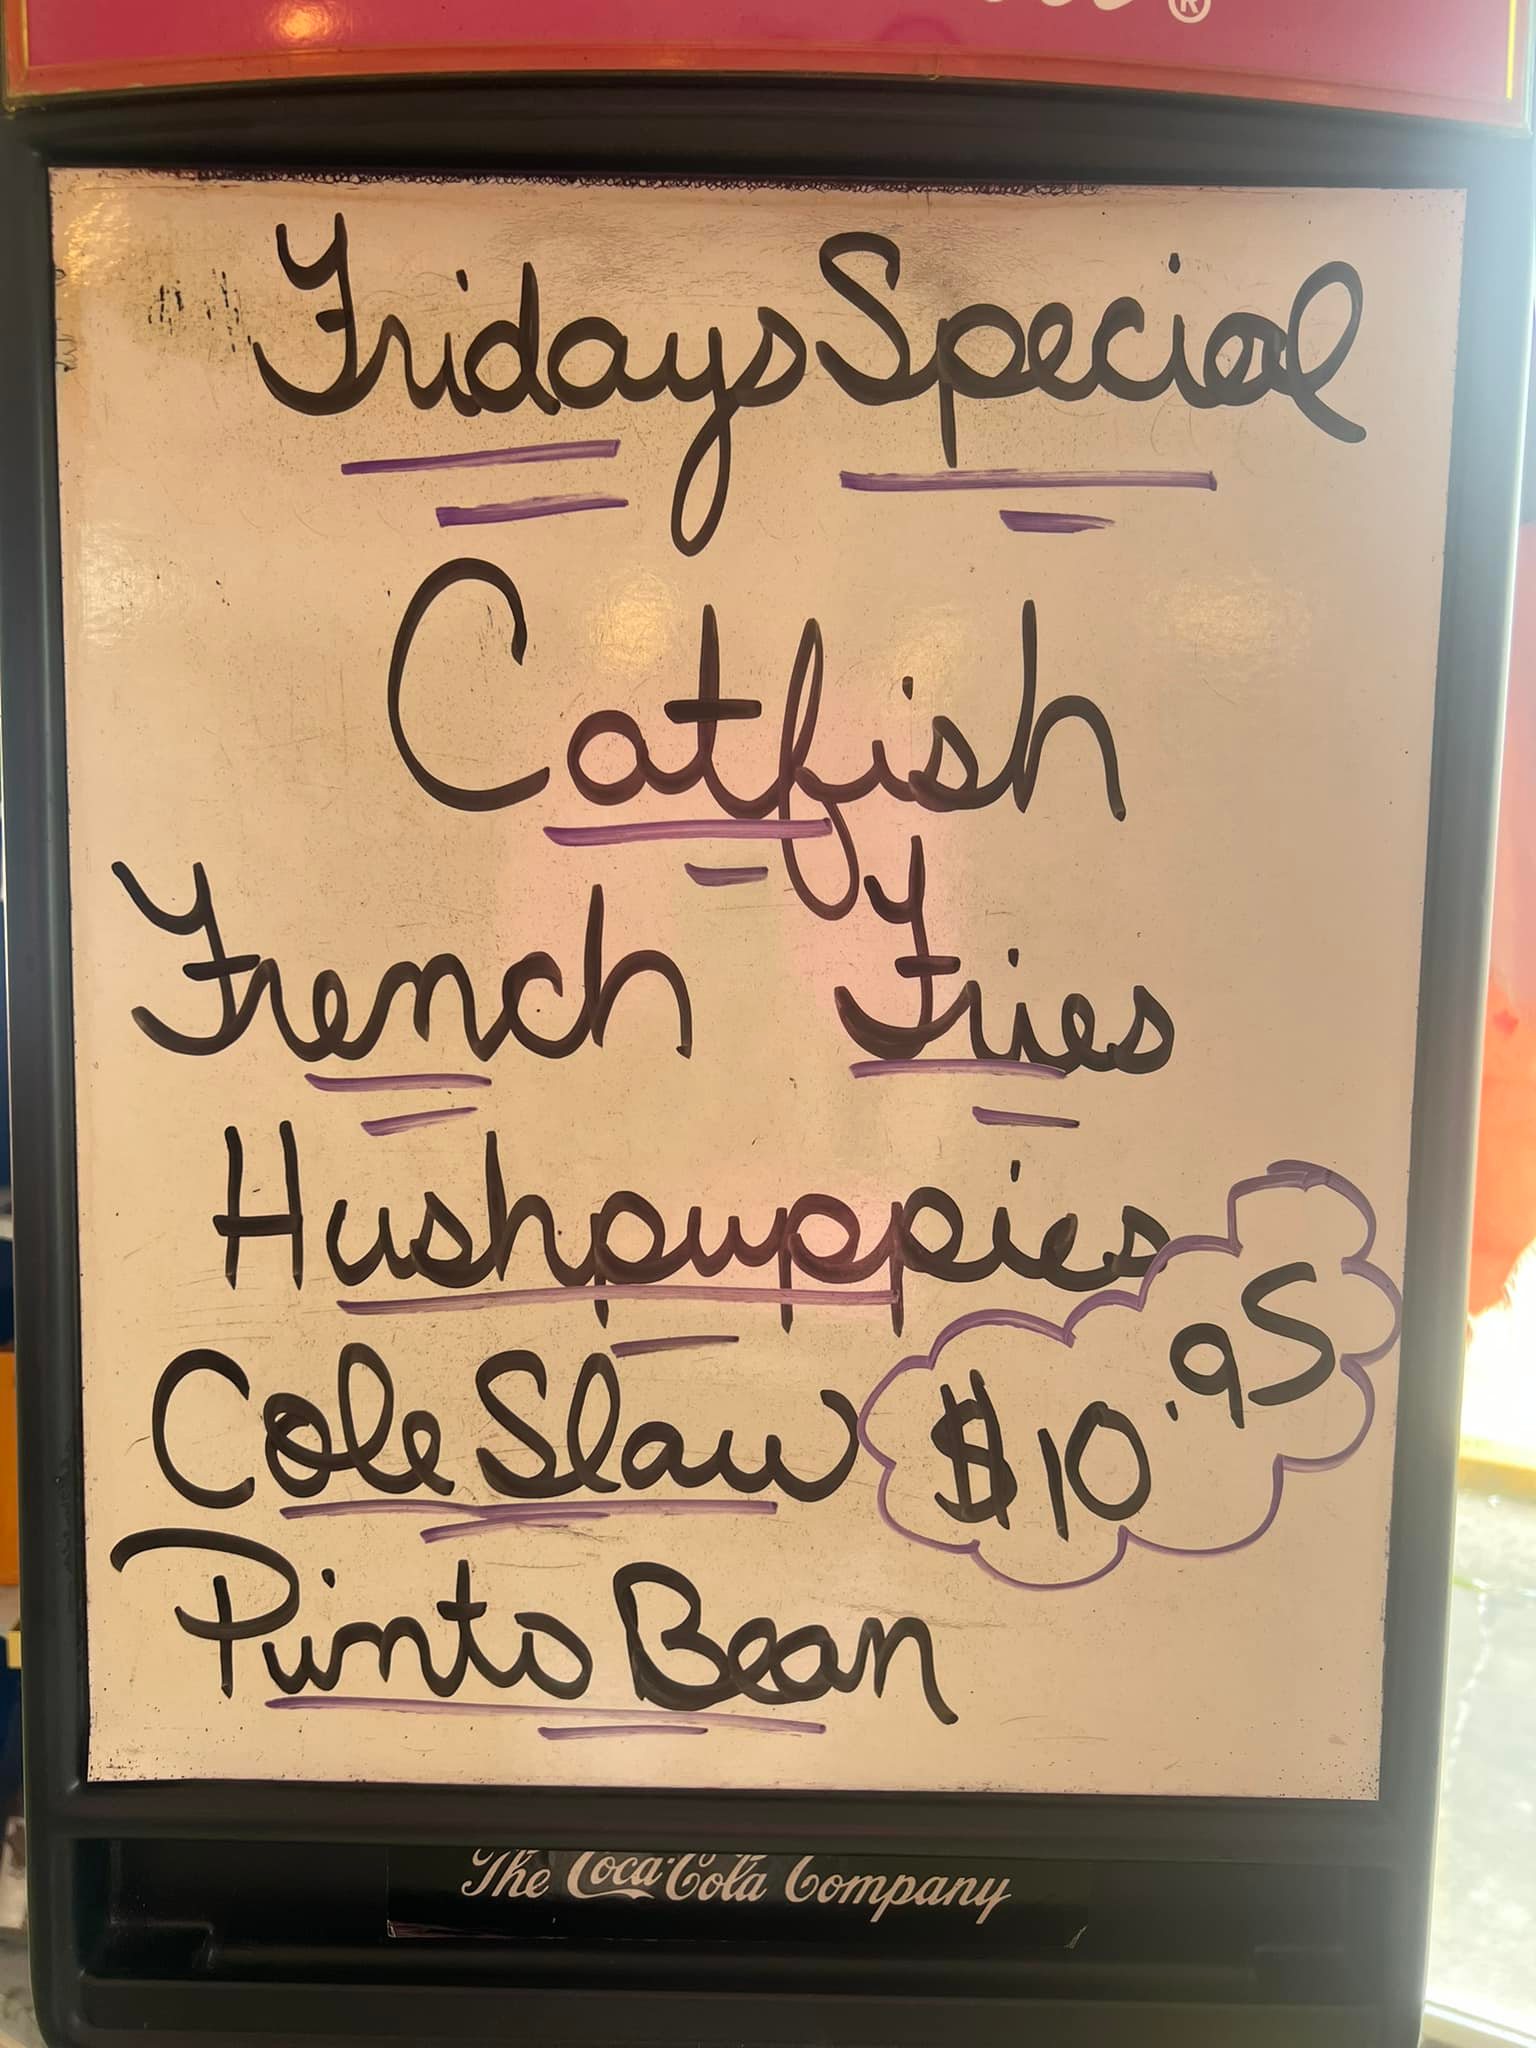 ®
Fridays Special
Catfish
French Fries
Hushpuppies
Cole Slaw
$10.95
Pinto Bean
The Coca-Cola Company